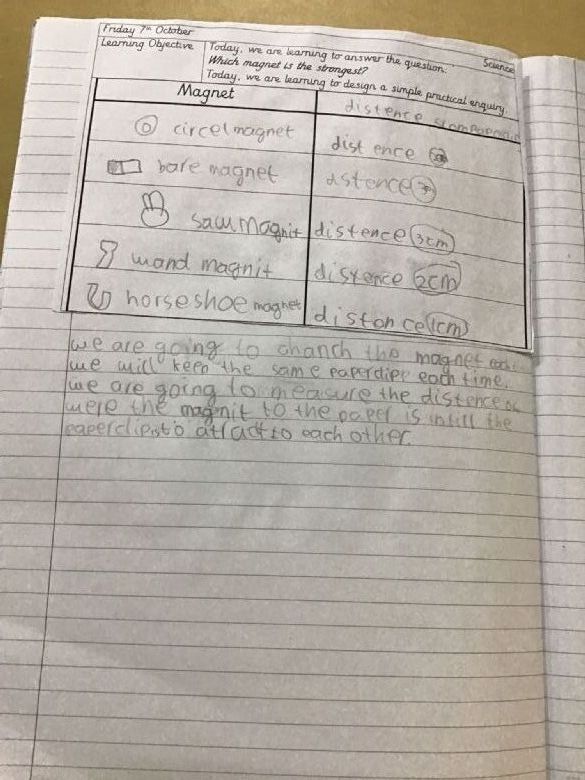 Friday 7th October
Science
Learning Objective
Today, we are learning to answer the question:
Which magnet is the strongest?
Today, we are learning to design a simple practical enquiry.
Magnet
distence
circel magnet
dist ence
bare magnet
dstence
saw magnit
distence 3cm
wand magnit
distence 2cm
horseshoe magnet
distonce 1cm
we are going to chanch the magnet
we will keep the same paperclipe each time.
we are going to measure the distence
were the magnit to the paper is intill the
paperclipis to attact to each other.